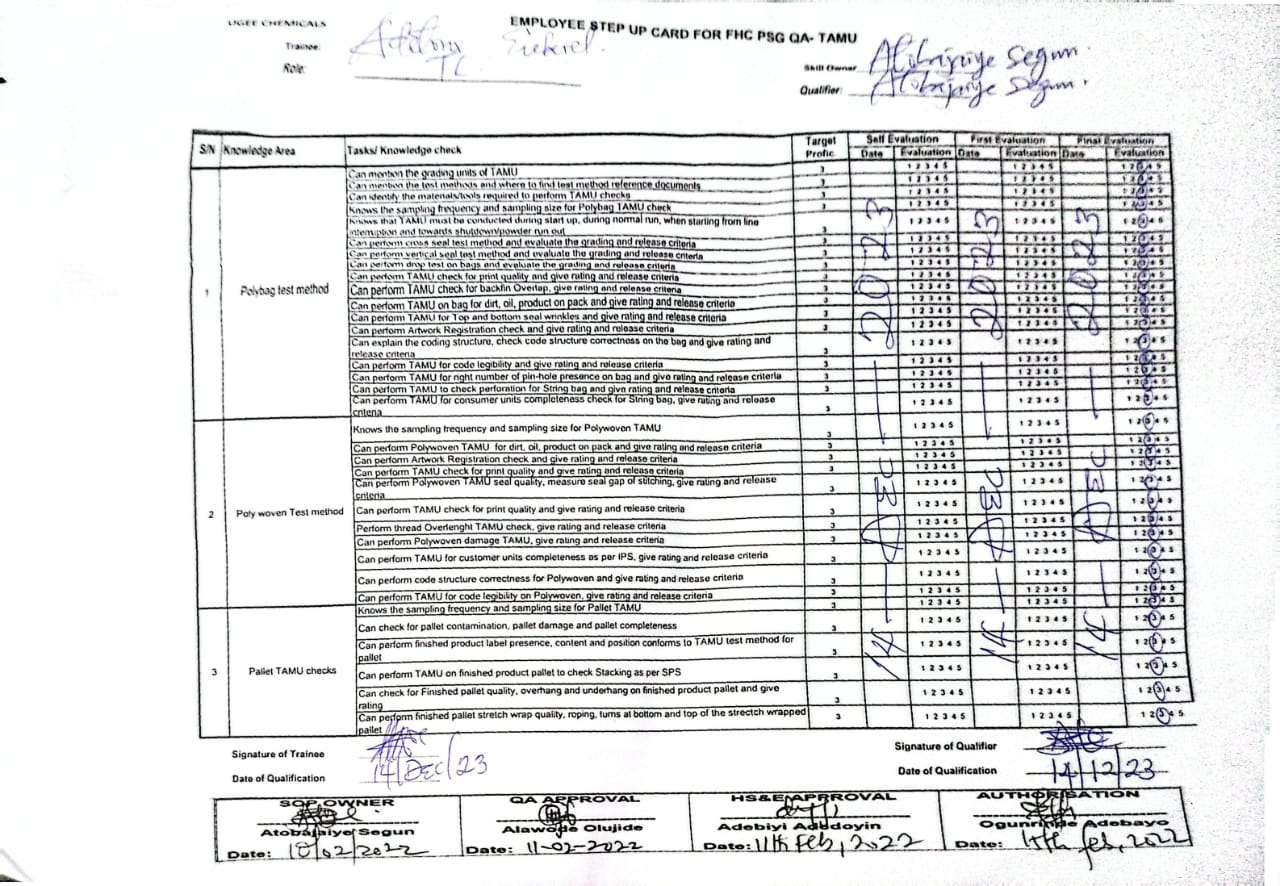 UGEE CHEMICALS
EMPLOYEE STEP UP CARD FOR FHC PSG QA- TAMU
Trainee:
Role: TC
Skill Owner Atobajaiye Segun.
Qualifier: Atobajaiye Segun.
S/N Knowledge Area Tasks/ Knowledge check Target Profic. Self Evaluation First Evaluation Final Evaluation
Date Evaluation Date Evaluation Date Evaluation
14 - DEC - 2023 14 - DEC - 2023 14 - DEC - 2023
1 Polybag test method
Can mention the grading units of TAMU 3 1 2 3 4 5 1 2 3 4 5 1 2 3 4 5
Can mention the test methods and where to find test method reference documents 3 1 2 3 4 5 1 2 3 4 5 1 2 3 4 5
Can identify the materials/tools required to perform TAMU checks 3 1 2 3 4 5 1 2 3 4 5 1 2 3 4 5
Knows the sampling frequency and sampling size for Polybag TAMU check 3 1 2 3 4 5 1 2 3 4 5 1 2 3 4 5
Knows that TAMU must be conducted during start up, during normal run, when starting from line
interruption and towards shutdown/powder run out 3 1 2 3 4 5 1 2 3 4 5 1 2 3 4 5
Can perform cross seal test method and evaluate the grading and release criteria 3 1 2 3 4 5 1 2 3 4 5 1 2 3 4 5
Can perform vertical seal test method and evaluate the grading and release criteria 3 1 2 3 4 5 1 2 3 4 5 1 2 3 4 5
Can perform drop test on bags and evaluate the grading and release criteria 3 1 2 3 4 5 1 2 3 4 5 1 2 3 4 5
Can perform TAMU check for print quality and give rating and release criteria 3 1 2 3 4 5 1 2 3 4 5 1 2 3 4 5
Can perform TAMU check for backfin Overlap, give rating and release criteria 3 1 2 3 4 5 1 2 3 4 5 1 2 3 4 5
Can perform TAMU on bag for dirt, oil, product on pack and give rating and release criteria 3 1 2 3 4 5 1 2 3 4 5 1 2 3 4 5
Can perform TAMU for Top and bottom seal wrinkles and give rating and release criteria 3 1 2 3 4 5 1 2 3 4 5 1 2 3 4 5
Can perform Artwork Registration check and give rating and release criteria 3 1 2 3 4 5 1 2 3 4 5 1 2 3 4 5
Can explain the coding structure, check code structure correctness on the bag and give rating and
release criteria 3 1 2 3 4 5 1 2 3 4 5 1 2 3 4 5
Can perform TAMU for code legibility and give rating and release criteria 3 1 2 3 4 5 1 2 3 4 5 1 2 3 4 5
Can perform TAMU for right number of pin-hole presence on bag and give rating and release criteria 3 1 2 3 4 5 1 2 3 4 5 1 2 3 4 5
Can perform TAMU to check perforation for String bag and give rating and release criteria 3 1 2 3 4 5 1 2 3 4 5 1 2 3 4 5
Can perform TAMU for consumer units completeness check for String bag, give rating and release
criteria 3 1 2 3 4 5 1 2 3 4 5 1 2 3 4 5
2 Poly woven Test method
Knows the sampling frequency and sampling size for Polywoven TAMU 3 1 2 3 4 5 1 2 3 4 5 1 2 3 4 5
Can perform Polywoven TAMU for dirt, oil, product on pack and give rating and release criteria 3 1 2 3 4 5 1 2 3 4 5 1 2 3 4 5
Can perform Artwork Registration check and give rating and release criteria 3 1 2 3 4 5 1 2 3 4 5 1 2 3 4 5
Can perform TAMU check for print quality and give rating and release criteria 3 1 2 3 4 5 1 2 3 4 5 1 2 3 4 5
Can perform Polywoven TAMU seal quality, measure seal gap of stitching, give rating and release
criteria 3 1 2 3 4 5 1 2 3 4 5 1 2 3 4 5
Can perform TAMU check for print quality and give rating and release criteria 3 1 2 3 4 5 1 2 3 4 5 1 2 3 4 5
Perform thread Overlenght TAMU check, give rating and release criteria 3 1 2 3 4 5 1 2 3 4 5 1 2 3 4 5
Can perform Polywoven damage TAMU, give rating and release criteria 3 1 2 3 4 5 1 2 3 4 5 1 2 3 4 5
Can perform TAMU for customer units completeness as per IPS, give rating and release criteria 3 1 2 3 4 5 1 2 3 4 5 1 2 3 4 5
Can perform code structure correctness for Polywoven and give rating and release criteria 3 1 2 3 4 5 1 2 3 4 5 1 2 3 4 5
Can perform TAMU for code legibility on Polywoven, give rating and release criteria 3 1 2 3 4 5 1 2 3 4 5 1 2 3 4 5
3 Pallet TAMU checks
Knows the sampling frequency and sampling size for Pallet TAMU 3 1 2 3 4 5 1 2 3 4 5 1 2 3 4 5
Can check for pallet contamination, pallet damage and pallet completeness 3 1 2 3 4 5 1 2 3 4 5 1 2 3 4 5
Can perform finished product label presence, content and position conforms to TAMU test method for
pallet 3 1 2 3 4 5 1 2 3 4 5 1 2 3 4 5
Can perform TAMU on finished product pallet to check Stacking as per SPS 3 1 2 3 4 5 1 2 3 4 5 1 2 3 4 5
Can check for Finished pallet quality, overhang and underhang on finished product pallet and give
rating 3 1 2 3 4 5 1 2 3 4 5 1 2 3 4 5
Can perform finished pallet stretch wrap quality, roping, turns at bottom and top of the strectch wrapped
pallet 3 1 2 3 4 5 1 2 3 4 5 1 2 3 4 5
Signature of Trainee Signature of Qualifier
Date of Qualification 14/DEC/23 Date of Qualification 14/12/23
SOP OWNER QA APPROVAL HS&E APRROVAL AUTHORISATION
Atobajaiye Segun Alawode Olujide Adebiyi Adedoyin Ogunrinde Adebayo
Date: 10/02/2022 Date: 11-02-2022 Date: 11th Feb, 2022 Date: 15th feb, 2022